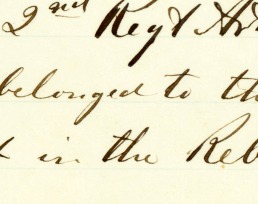 2nd Regt Ar
belonged to th
t in the Reb